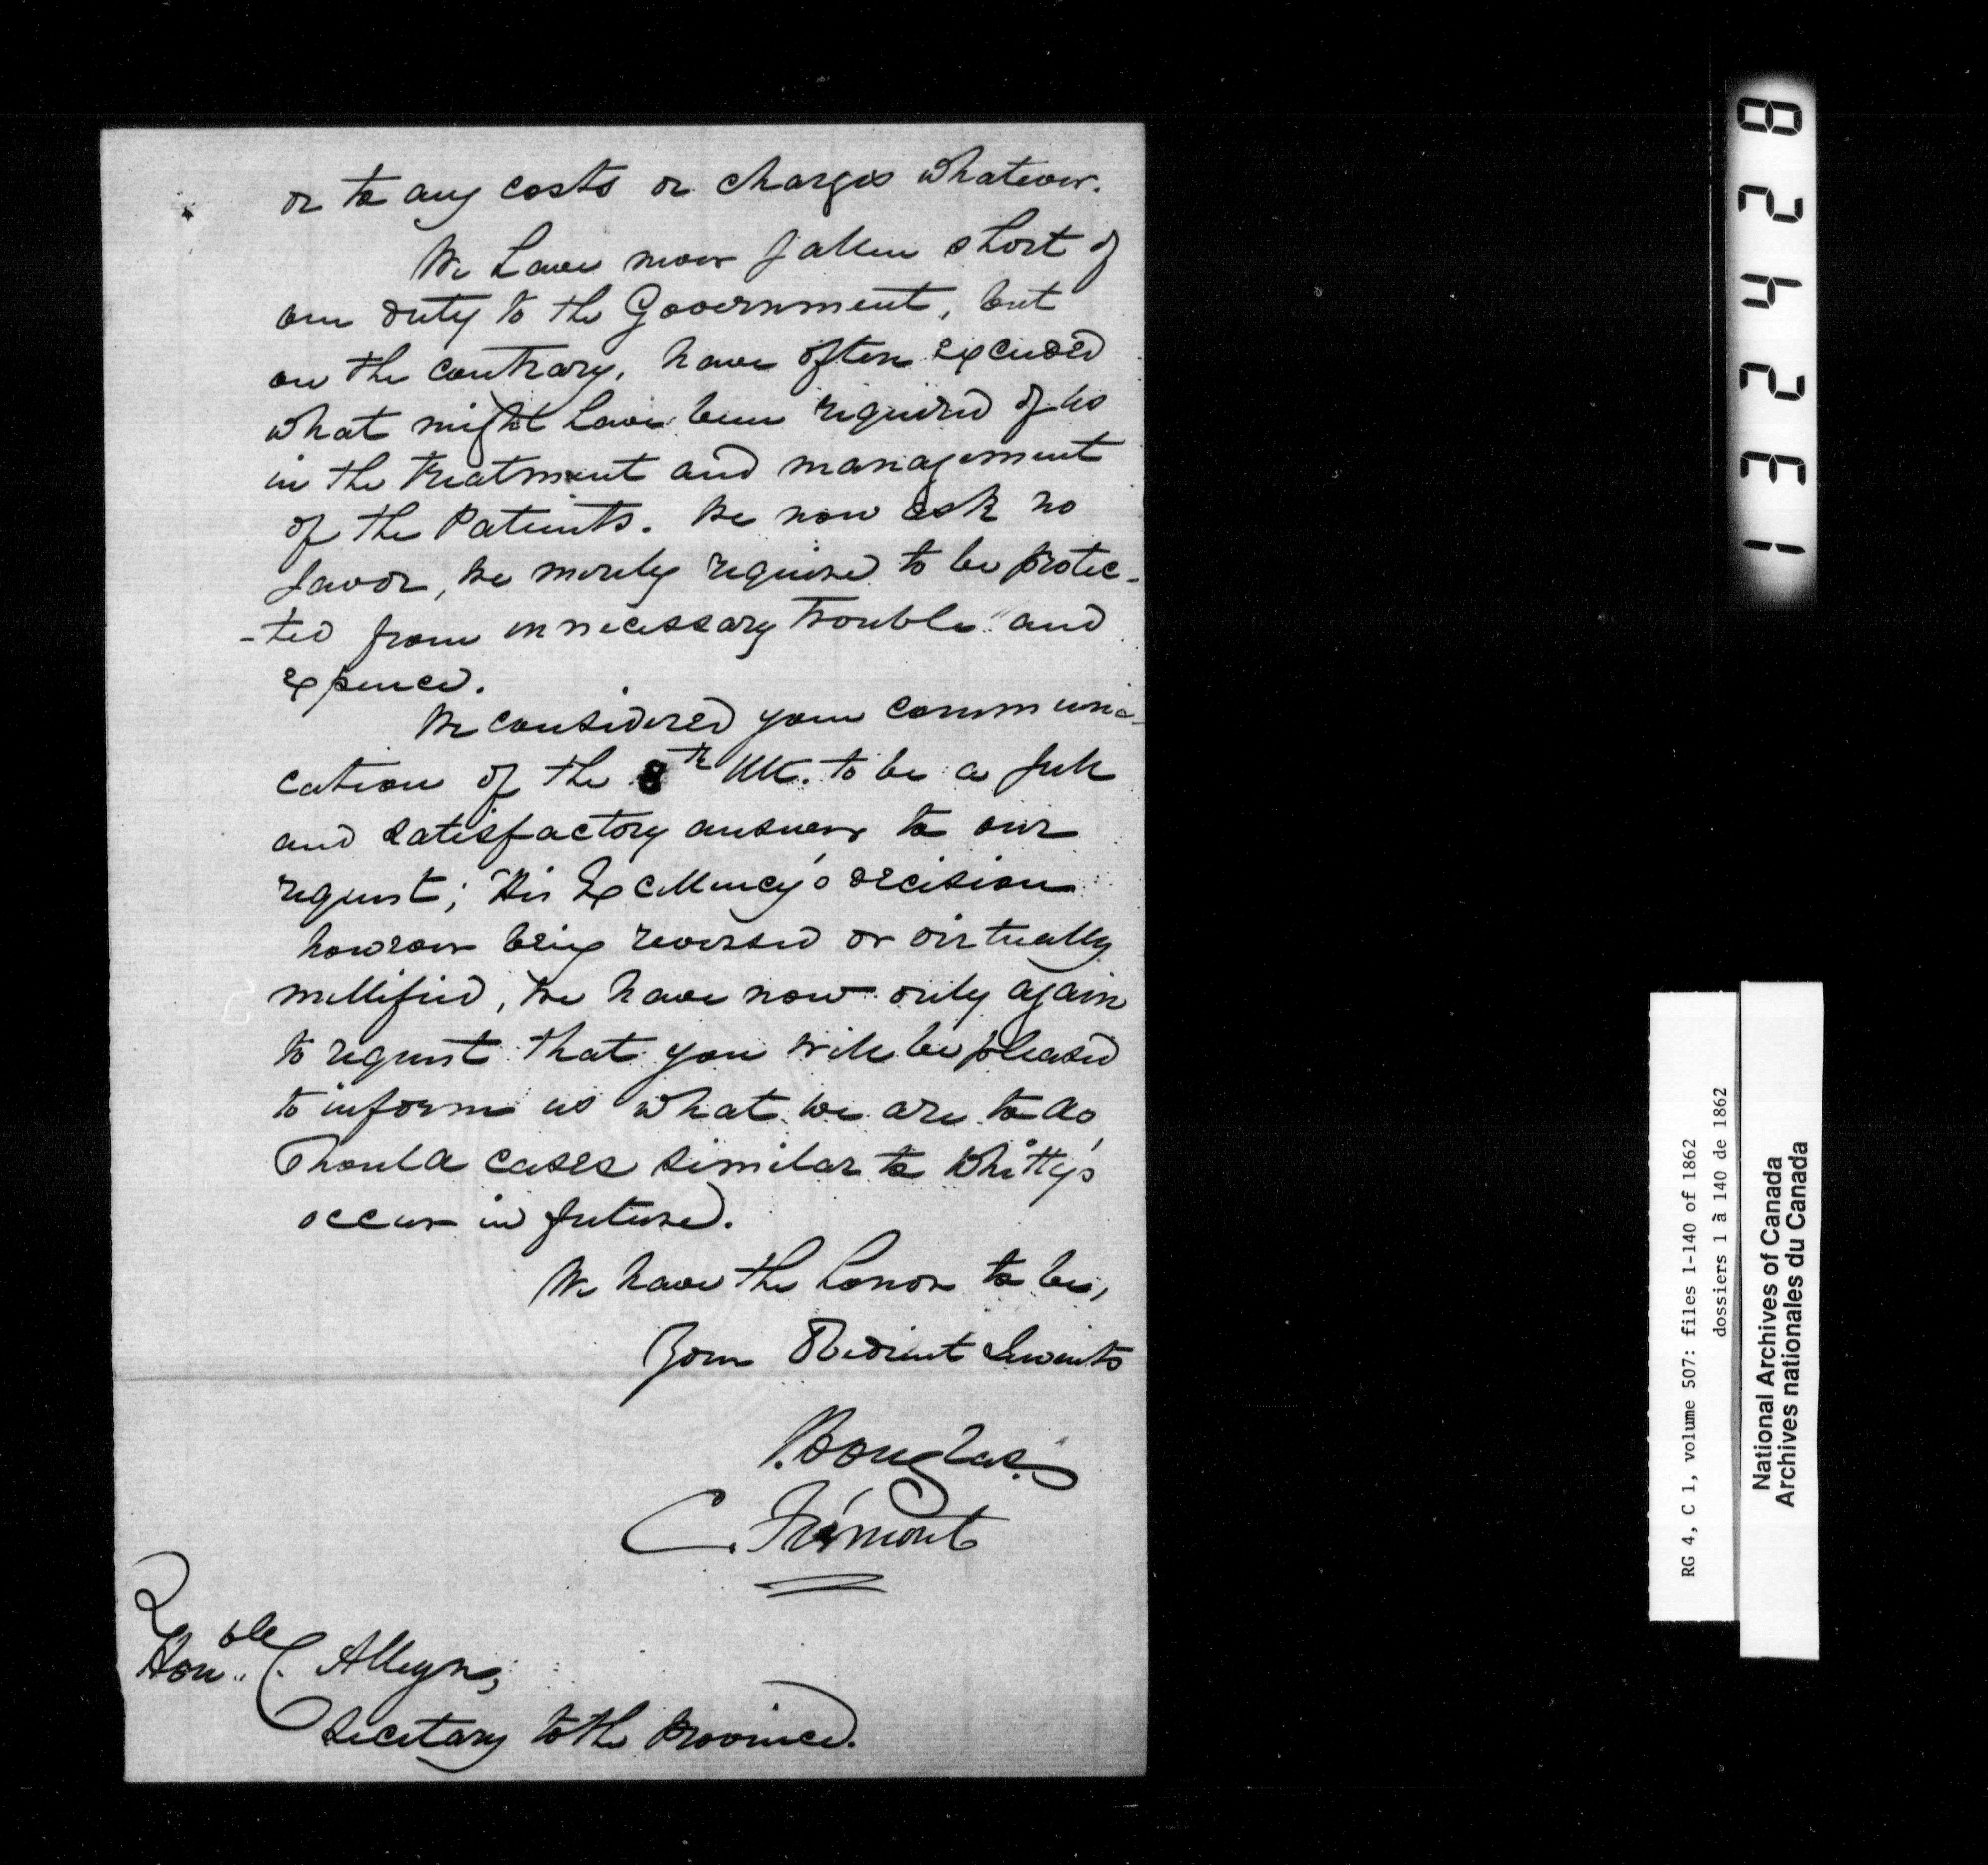 or to any costs or charges whatever.
We have never fallen short of
our duty to the Government, but
on the contrary, have often exceeded
what might have been required of us
in the treatment and management
of the Patients. We now ask no
favor, we merely require to be protec-
-ted from unnecessary trouble and
expence.
We considered your communi-
cation of the 8th Ult. to be a full
and satisfactory answer to our
request; His Excellency's decision
however being reversed or virtually
nullified, we have now only again
to request that you will be pleased
to inform us what we are to do,
Should cases similar to Whitty's
occur in future.
We have the honor to be,
Your Obedient Servants
J. Douglas
C. Frémont
Honble C. Alleyn,
Secetary to the Province.
132428
RG 4, C 1, volume 507: files 1-140 of 1862
dossiers 1 à 140 de 1862
National Archives of Canada
Archives nationales du Canada